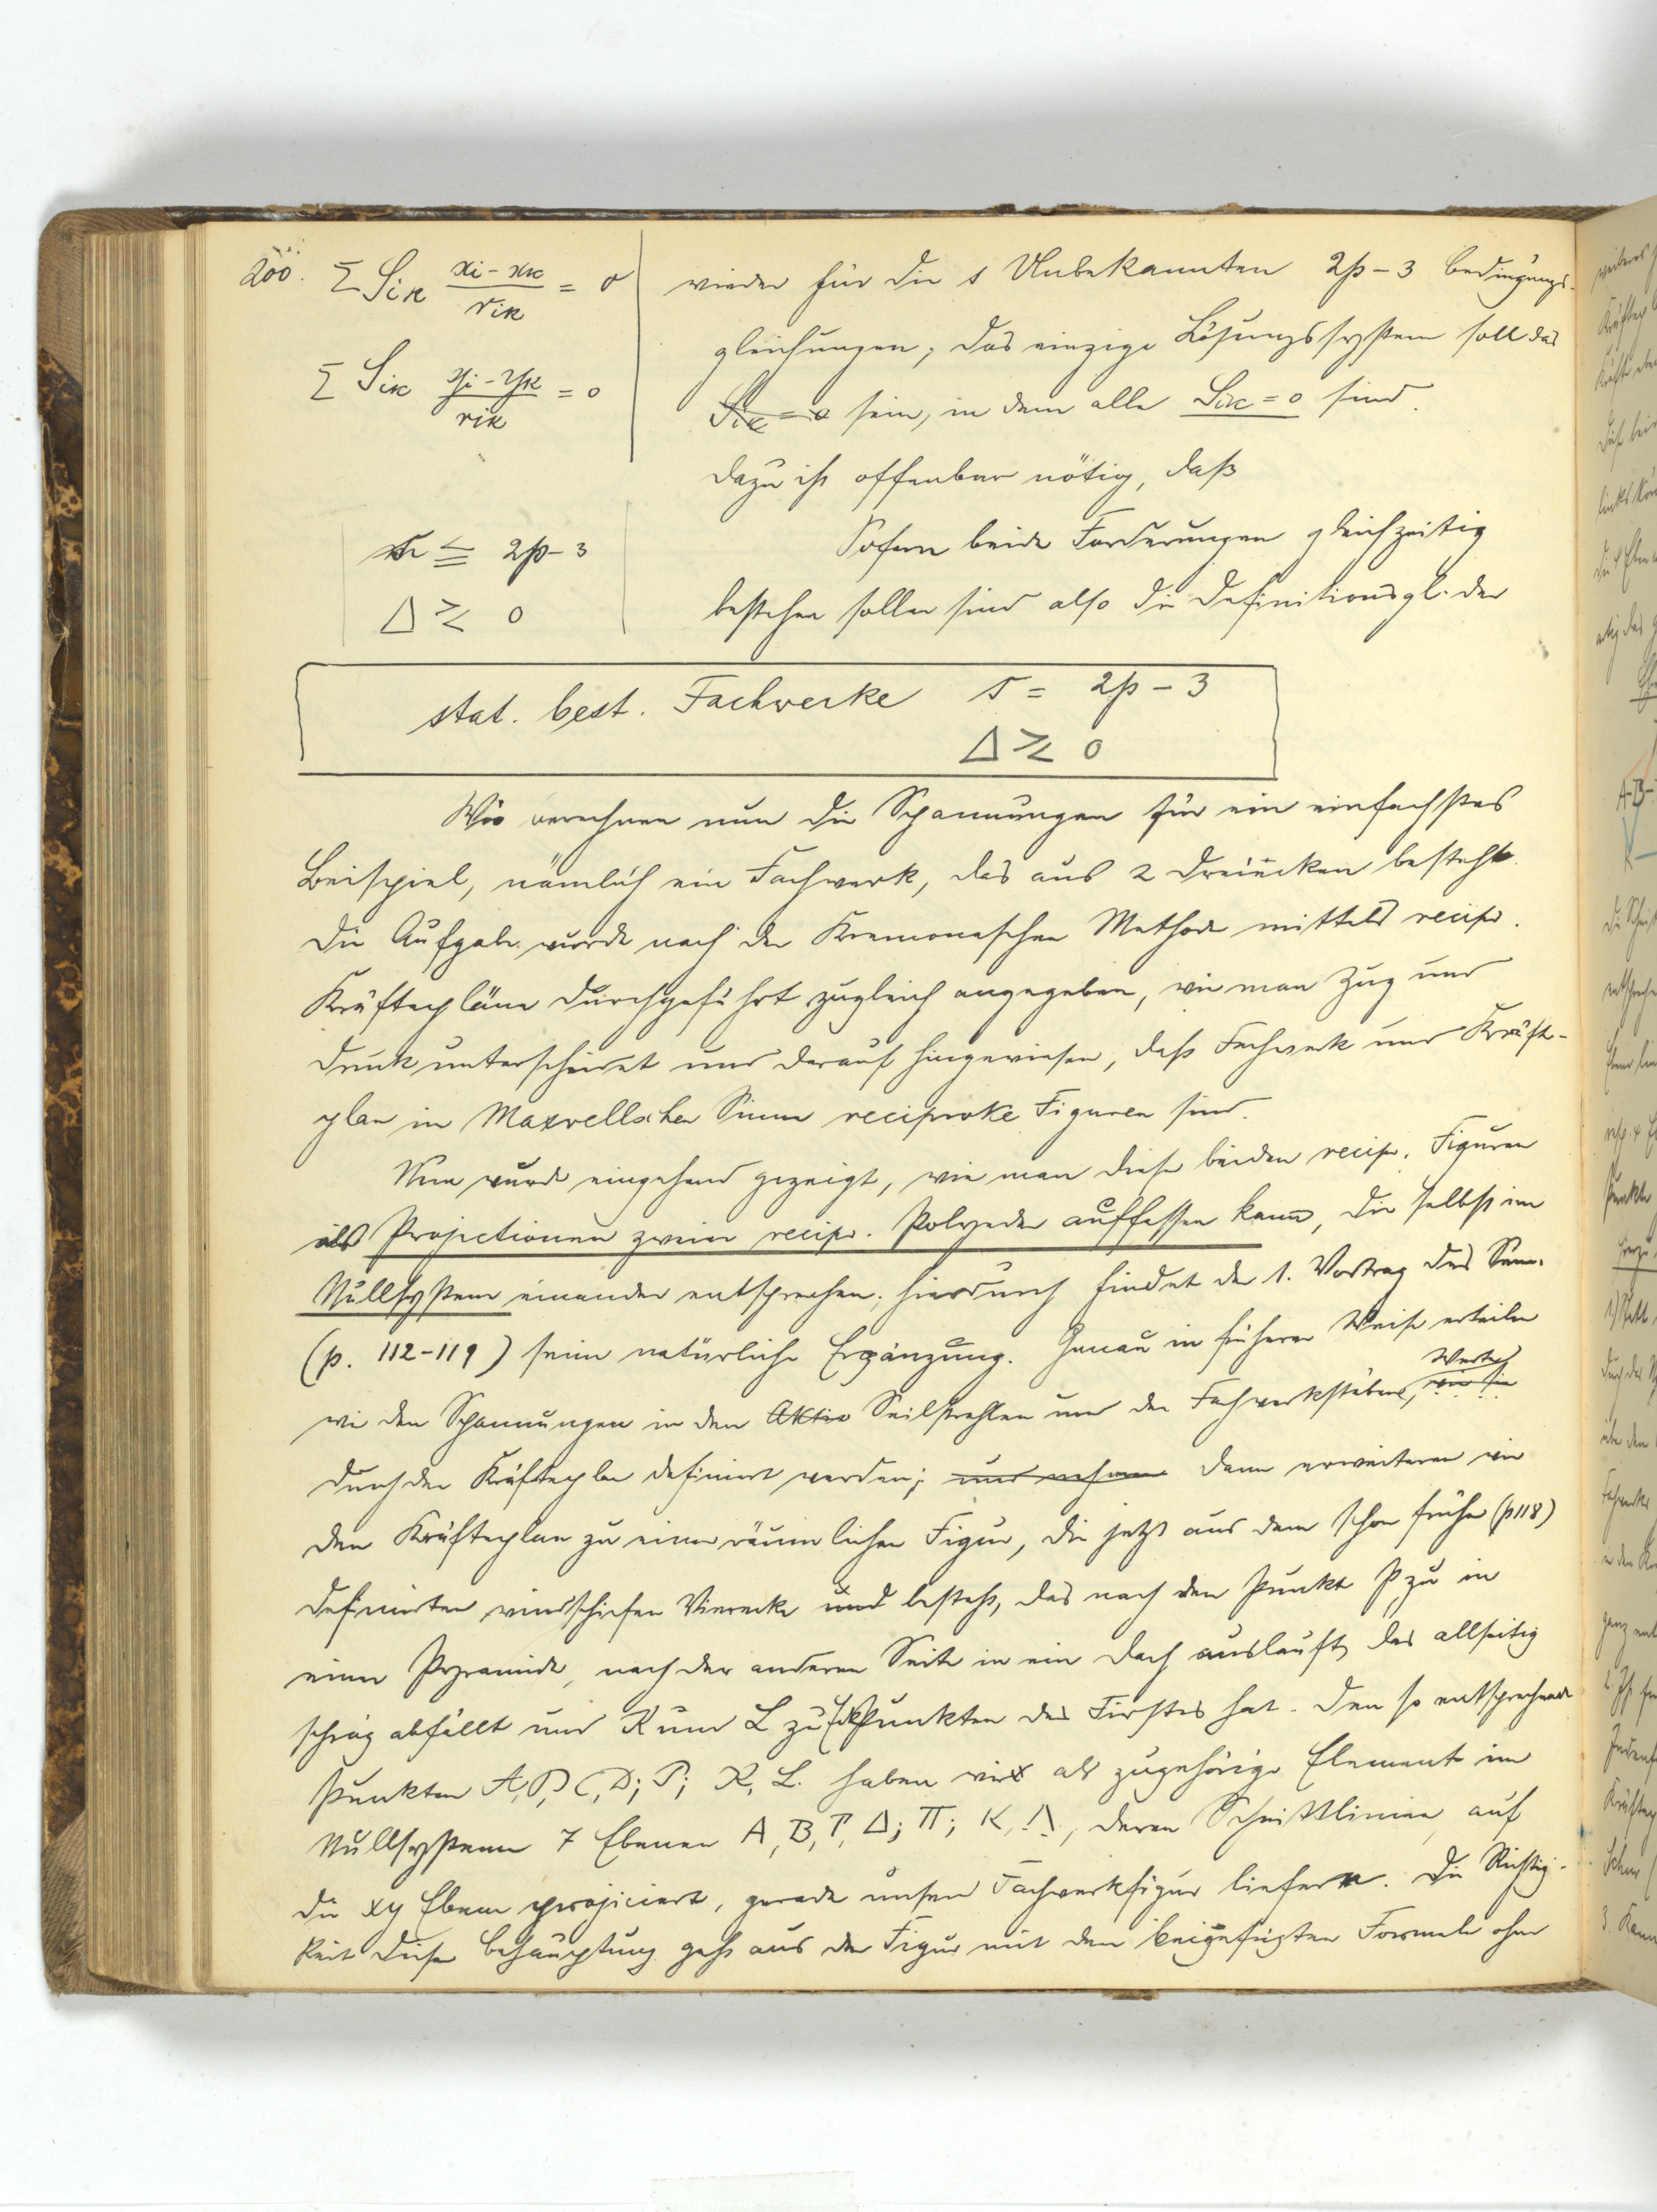 200. Σ S_ik (x_i - x_k)/r_ik = 0
Σ S_ik (y_i - y_k)/r_ik = 0
wieder für die s Unbekannten 2p-3 Bedingungs-
gleichungen; das einzige Lösungssystem soll das
S_ik = 0 sein, in dem alle S_ik = 0 sind.
Dazu ist offenbar nötig, daß
s ≦ 2p-3
Δ ≷ 0
Sofern beide Forderungen gleichzeitig
bestehen sollen sind also die Definitionsgl. der
stat. best. Fachwerke s = 2p-3
Δ ≷ 0
Wir berechnen nun die Spannungen für ein einfachstes
Beispiel, nämlich ein Fachwerk, das aus 2 Dreiecken besteht.
Die Aufgabe wurde nach der Kremonaschen Methode mittels recipr.
Kräftepläne durchgeführt zugleich angegeben, wie man Zug und
Druck unterscheidet und darauf hingewiesen, daß Fachwerk und Kräfte-
plan in Maxwellschen Sinne reciproke Figuren sind.
Nun wurde eingehend gezeigt, wie man diese beiden recipr. Figuren
als Projectionen zweier recipr. Polyeder auffassen kann, die selbst im
Nullsystem einander entsprechen; hierdurch findet der 1. Vortrag des Sem.
(p. 112-119) seine natürliche Ergänzung. Genau in früherer Weise erteilen
wir den Spannungen in den Aktio Seilstrahlen und den Fachwerkstäben, wie sie Werte,
durch den Kräfteplan definiert werden; und nehmen dann erweiteren wir
den Kräfteplan zu einer räumlichen Figur, die jetzt aus dem schon früher (p 118)
definirten windschiefen Vierecke und besteht, das nach dem Punkt P zu in
einer Pyramide, nach der anderen Seite in ein Dach ausläuft, das allseitig
schräg abfällt und K und L zu Eckpunkten des Firstes hat. Den so entsprechenden
Punkten A, B, C, D; P; K, L. haben wir als zugehörige Element im
Nullsystem 7 Ebenen Α, Β, Γ, Δ; Π; Κ, Λ, deren Schnittlinien, auf
die xy Ebene projiciert, gerade unsere Fachwerkfigur liefern. Die Richtig-
keit dieser Behauptung geht aus der Figur mit den beigefügten Formeln ohne